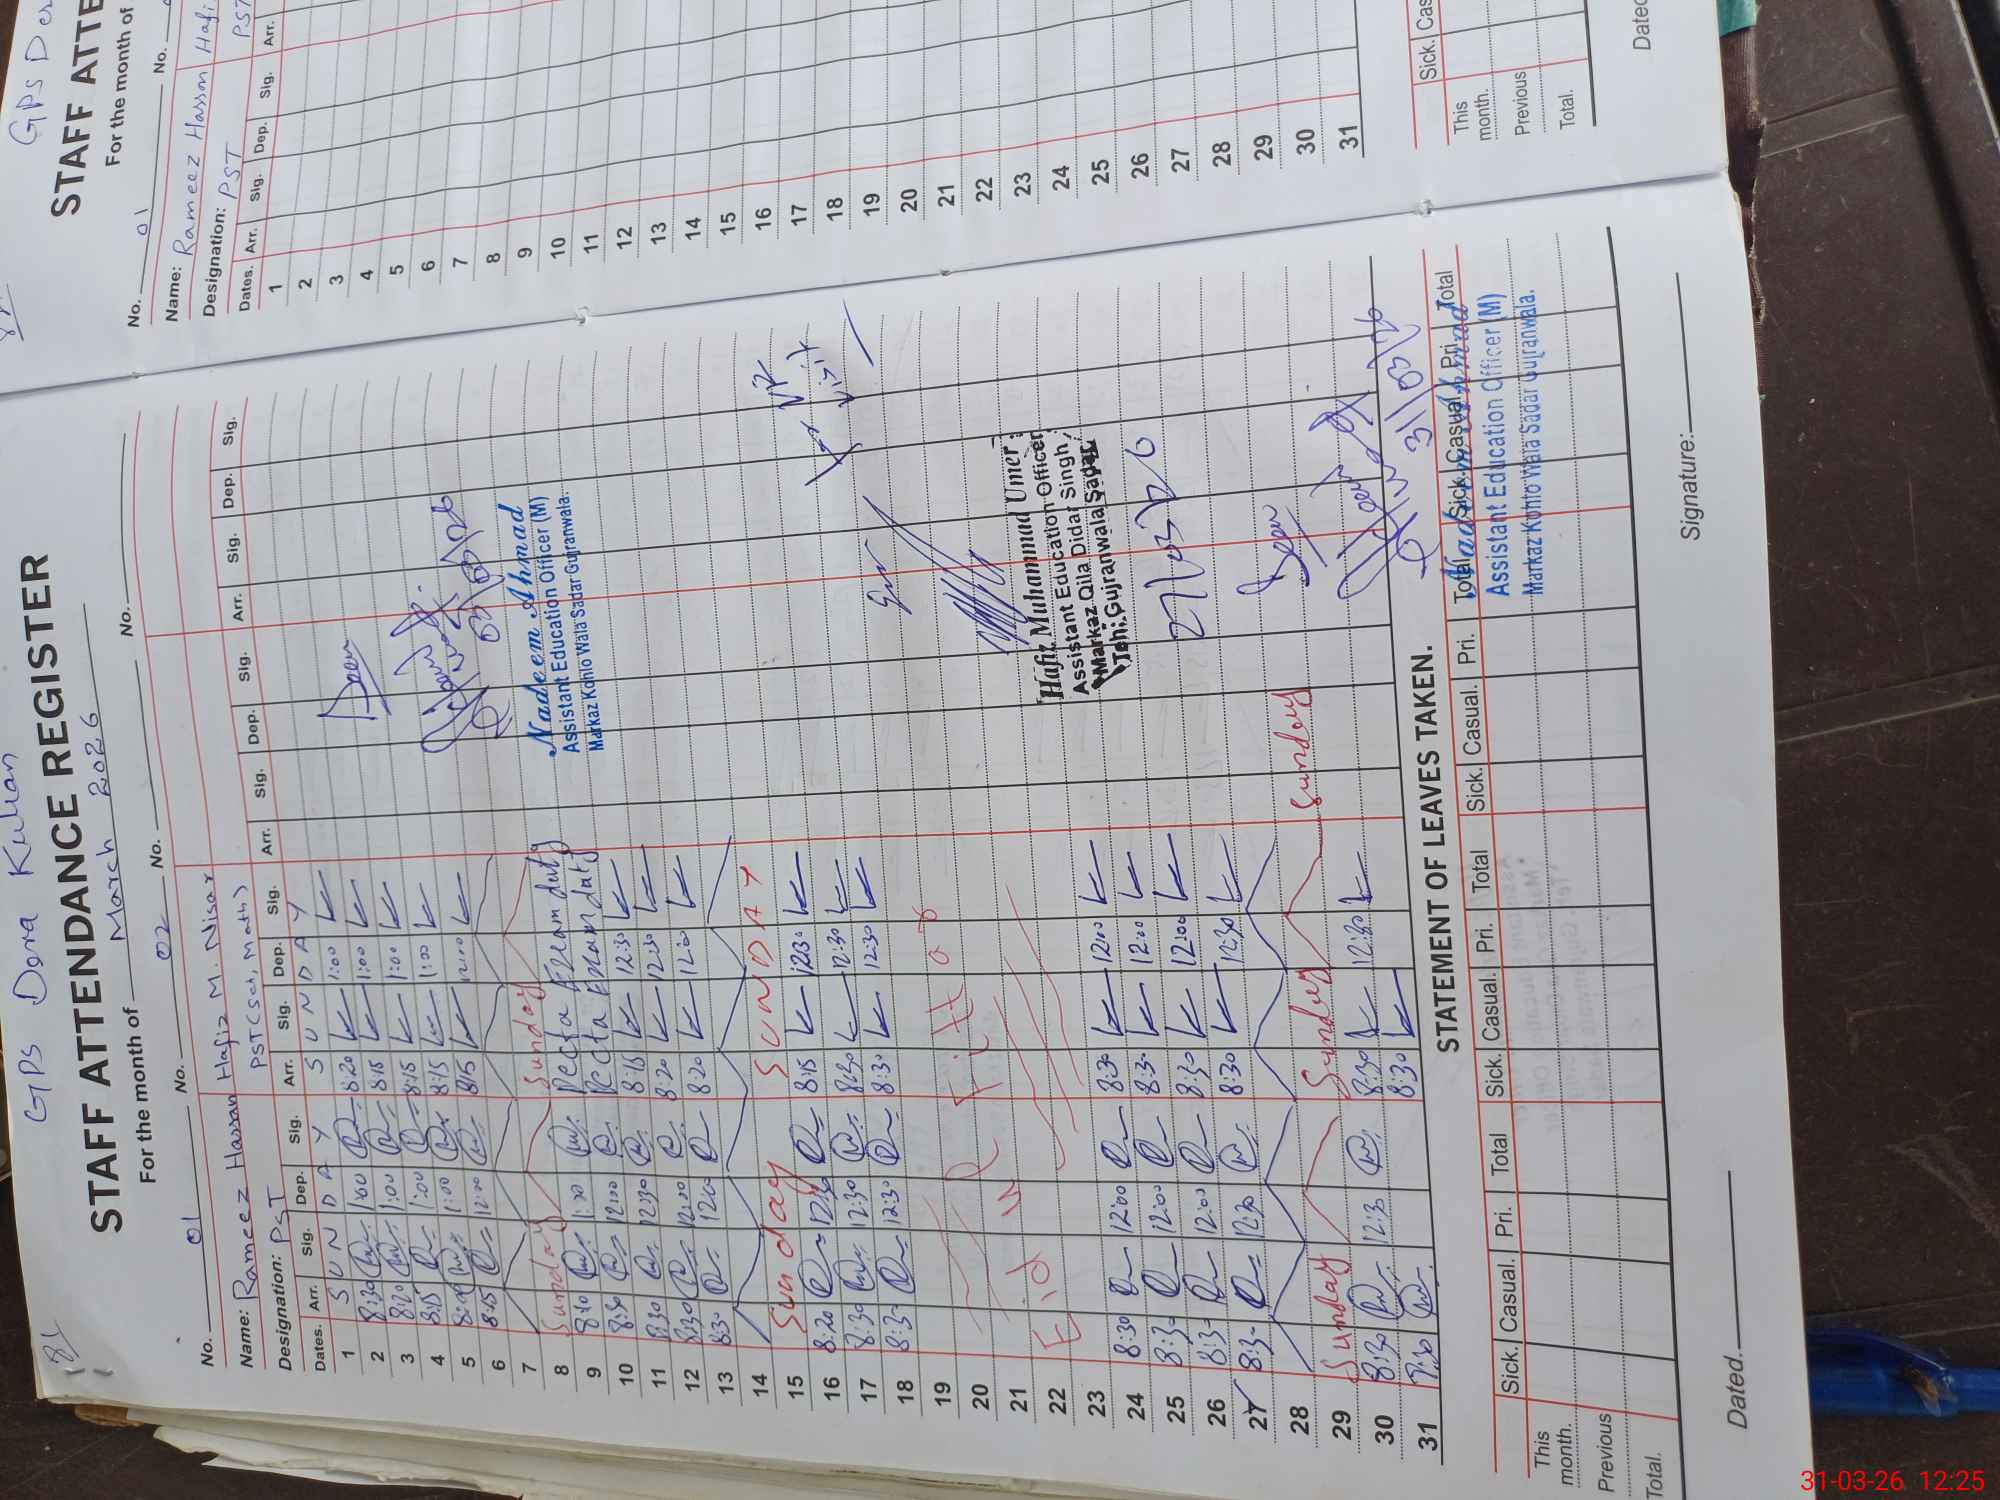 GPS Dera Kullan
STAFF ATTENDANCE REGISTER
For the month of March 2026
No. 01 No. 02 No. No.
Name: Rameez Hassan Hafiz M. Nisar
Designation: PST PST (Sch, Math)
Dates. Arr. Sig. Dep. Sig. Arr. Sig. Dep. Sig. Arr. Sig. Dep. Sig. Arr. Sig. Dep. Sig.
1 S U N D A Y S U N D A Y
2 8:30 1:00 8:20 1:00
3 8:20 1:00 8:15 1:00
4 8:15 1:00 8:15 1:00
5 1:00 8:15 1:00
6 8:15 12:00 8:15 12:00
7
8 Sunday Sunday
9 1:30 Pecta Exam duty
10 8:30 12:00 Pecta Exam duty
11 8:30 12:30 8:15 12:30
12 8:30 12:00 8:20 12:30
13 8:30 12:00 8:20 12:00
14
15 Sunday S U N D A Y
16 8:20 12:30 8:15 12:30
17 8:30 12:30 8:30 12:30
18 8:30 12:30 8:30 12:30
19
20
21
22
Eid ul Fittar
23
24 8:30 12:00 8:30 12:00
25 8:30 12:00 8:30 12:00
26 8:30 12:00 8:30 12:00
27 8:30 12:30 8:30 12:30
28
29 Sunday Sunday Sunday
30 8:30 12:30 8:30 12:30
31 8:30
Nadeem Ahmad
Assistant Education Officer (M)
Markaz Kohlo Wala Sadar Gujranwala.
Visit
Hafiz Muhammad Umer
Assistant Education Officer
Markaz Qila Didar Singh
Teh: Gujranwala Sadar
27/03/26
31/03/26
Nadeem Ahmad
Assistant Education Officer (M)
Markaz Kohlo Wala Sadar Gujranwala.
STATEMENT OF LEAVES TAKEN.
Sick. Casual. Pri. Total Sick. Casual. Pri. Total Sick. Casual. Pri. Total Sick. Casual. Pri. Total
This month.
Previous
Total.
Dated. Signature:
GPS Der
STAFF ATTE
For the month of
No. 01 No.
Name: Rameez Hassan Hafi
Designation: PST PST
Dates. Arr. Sig. Dep. Sig. Arr.
1
2
3
4
5
6
7
8
9
10
11
12
13
14
15
16
17
18
19
20
21
22
23
24
25
26
27
28
29
30
31
Sick. Cas
This month.
Previous
Total.
Dated
31-03-26 12:25